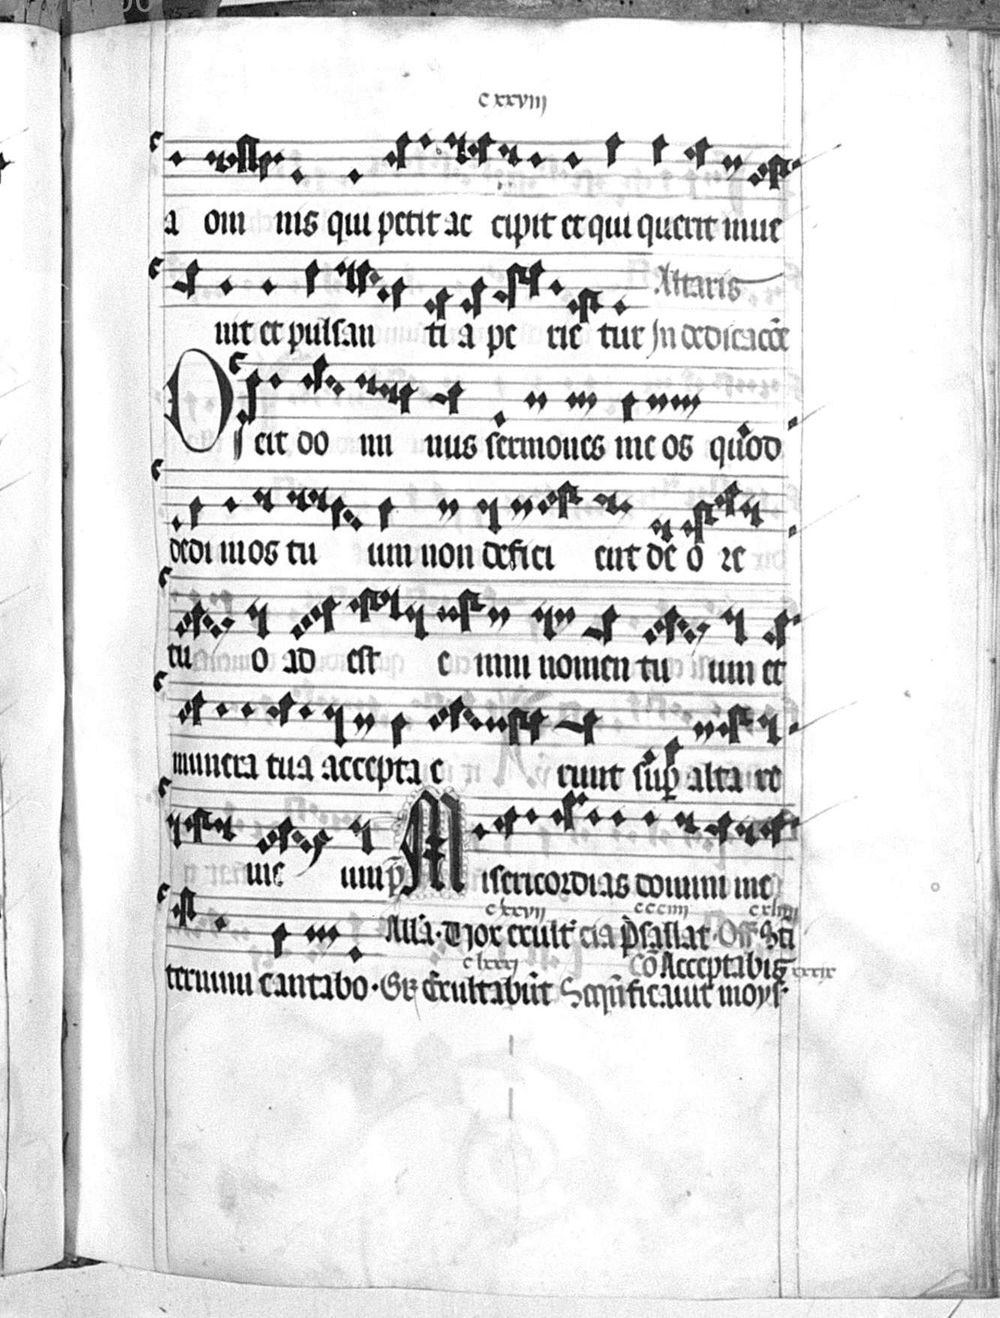 cxxviij
a om nis qui petit ac cipit et qui querit inue
Altaris
nit et pulsan ti a pe rie tur In dedicacōe
Dicit do mi nus sermones me os quod
dedi in os tu um non defici ent de o re
tu o ad est e nim nomen tu um et
munera tua accepta e runt sup altare
me um p̄ Misericordias domini in e
cxxvij ccciiij cxliiij
Alla. Exult eia psallat. Off. Sti
clxxj Cō Acceptabis xxxix
ternum cantabo. Gr Exultabūt Sāctificauit moys